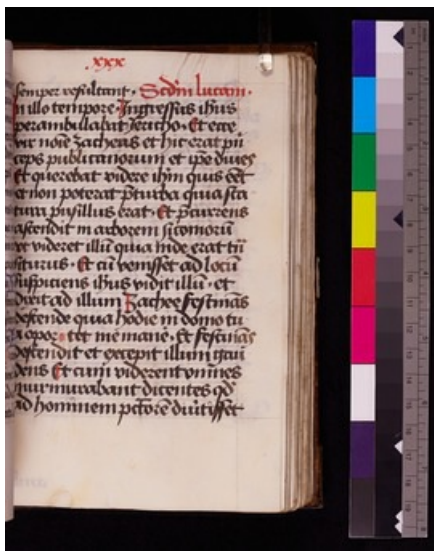 xxx
semper resultant · Scdm lucam ·
In illo tempore · Ingressus ihus
perambulabat Jericho · Et ecce
vir noīe zacheus et hic erat prī
ceps publicanorum et ipē diues
Et querebat videre ihm quis eēt
et non poterat p̄ turba quia sta
tura pusillus erat · Et p̄currens
ascendit in arborem sicomorū
vt videret illū quia inde erat trā
siturus · Et cū venisset ad locū
suspiciens ihus vidit illū · et
dixit ad illum Zachee festinās
descende quia hodie in domo tu
a opor tet me manē · Et festinās
descendit et excepit illum gau
dens Et cum viderent omnes
murmurabant dicentes qd
ad hominem pctōrē diuertisset